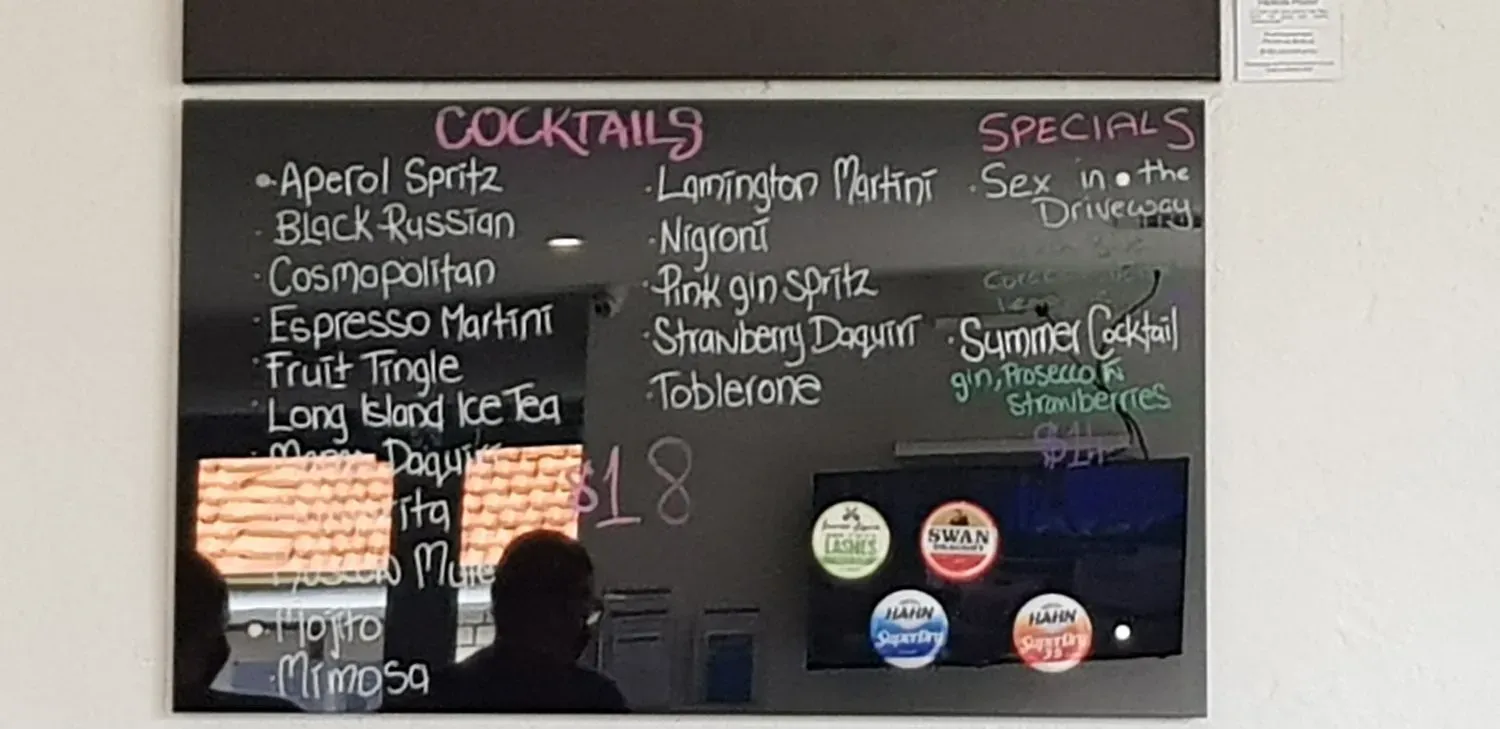 COCKTAILS
• Aperol Spritz
· Black Russian
· Cosmopolitan
· Espresso Martini
· Fruit Tingle
· Long Island Ice Tea
Daquiri
· Mojito
· Mimosa
· Lamington Martini
· Nigroni
· Pink gin spritz
· Strawberry Daquiri
· Toblerone
$18
SPECIALS
· Sex in the
Driveway
· Summer Cocktail
gin, Prosecco &
Strawberries
$14
LASHES
SWAN
DRAUGHT
HAHN
SuperDry
HAHN
SuperDry
3.5